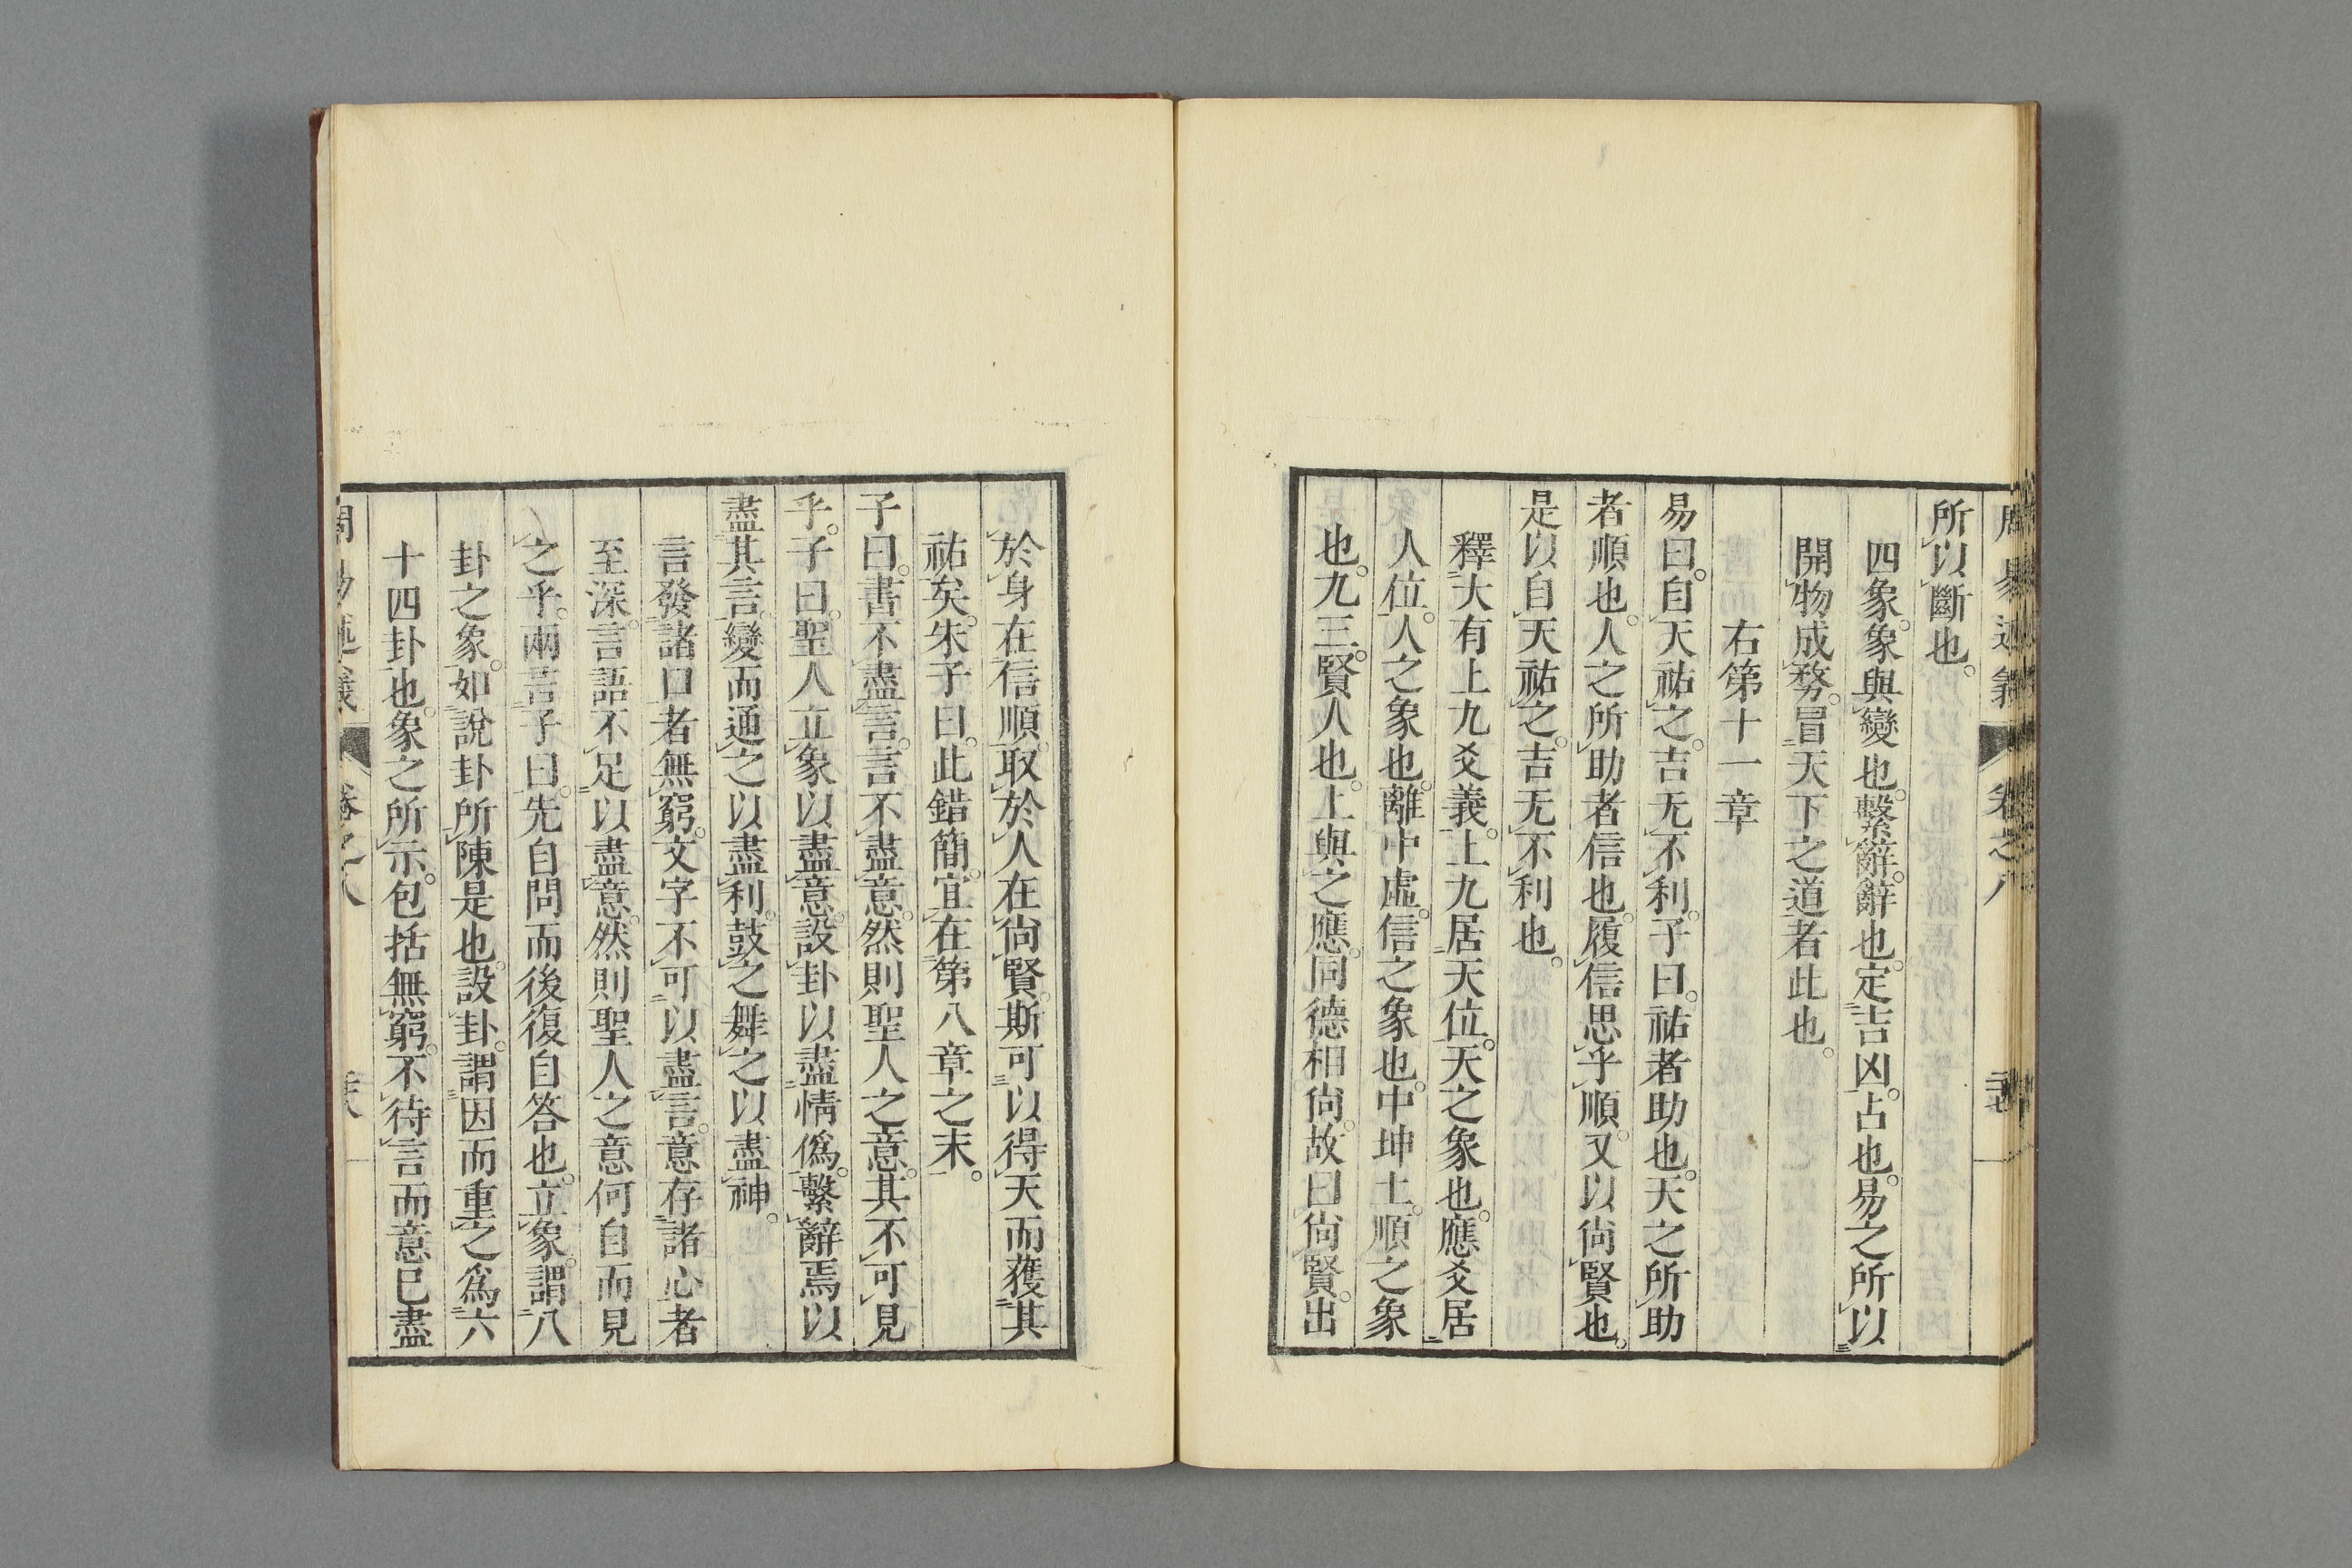 所以斷也。
四象。象與變也。繫辭。辭也。定吉凶。占也。易之所以
開物成務。冒天下之道者此也。
右第十一章
易曰。自天祐之。吉无不利。子曰。祐者助也。天之所助
者順也。人之所助者信也。履信思乎順。又以尙賢也。
是以自天祐之。吉无不利也。
釋大有上九爻義。上九居天位。天之象也。應爻居
人位。人之象也。離中虛。信之象也。中坤土。順之象
也。九三。賢人也。上與之應。同德相尙。故曰尙賢。出
於身在信順。取於人在尙賢。斯可以得天而獲其
祐矣。朱子曰。此錯簡。宜在第八章之末。
子曰。書不盡言。言不盡意。然則聖人之意。其不可見
乎。子曰。聖人立象以盡意。設卦以盡情僞。繫辭焉以
盡其言。變而通之以盡利。鼓之舞之以盡神。
言發諸口者無窮。文字不可以盡言。意存諸心者
至深。言語不足以盡意。然則聖人之意何自而見
之乎。兩言子曰。先自問而後復自答也。立象。謂八
卦之象。如說卦所陳是也。設卦。謂因而重之爲六
十四卦也。象之所示。包括無窮。不待言而意已盡
卷之八